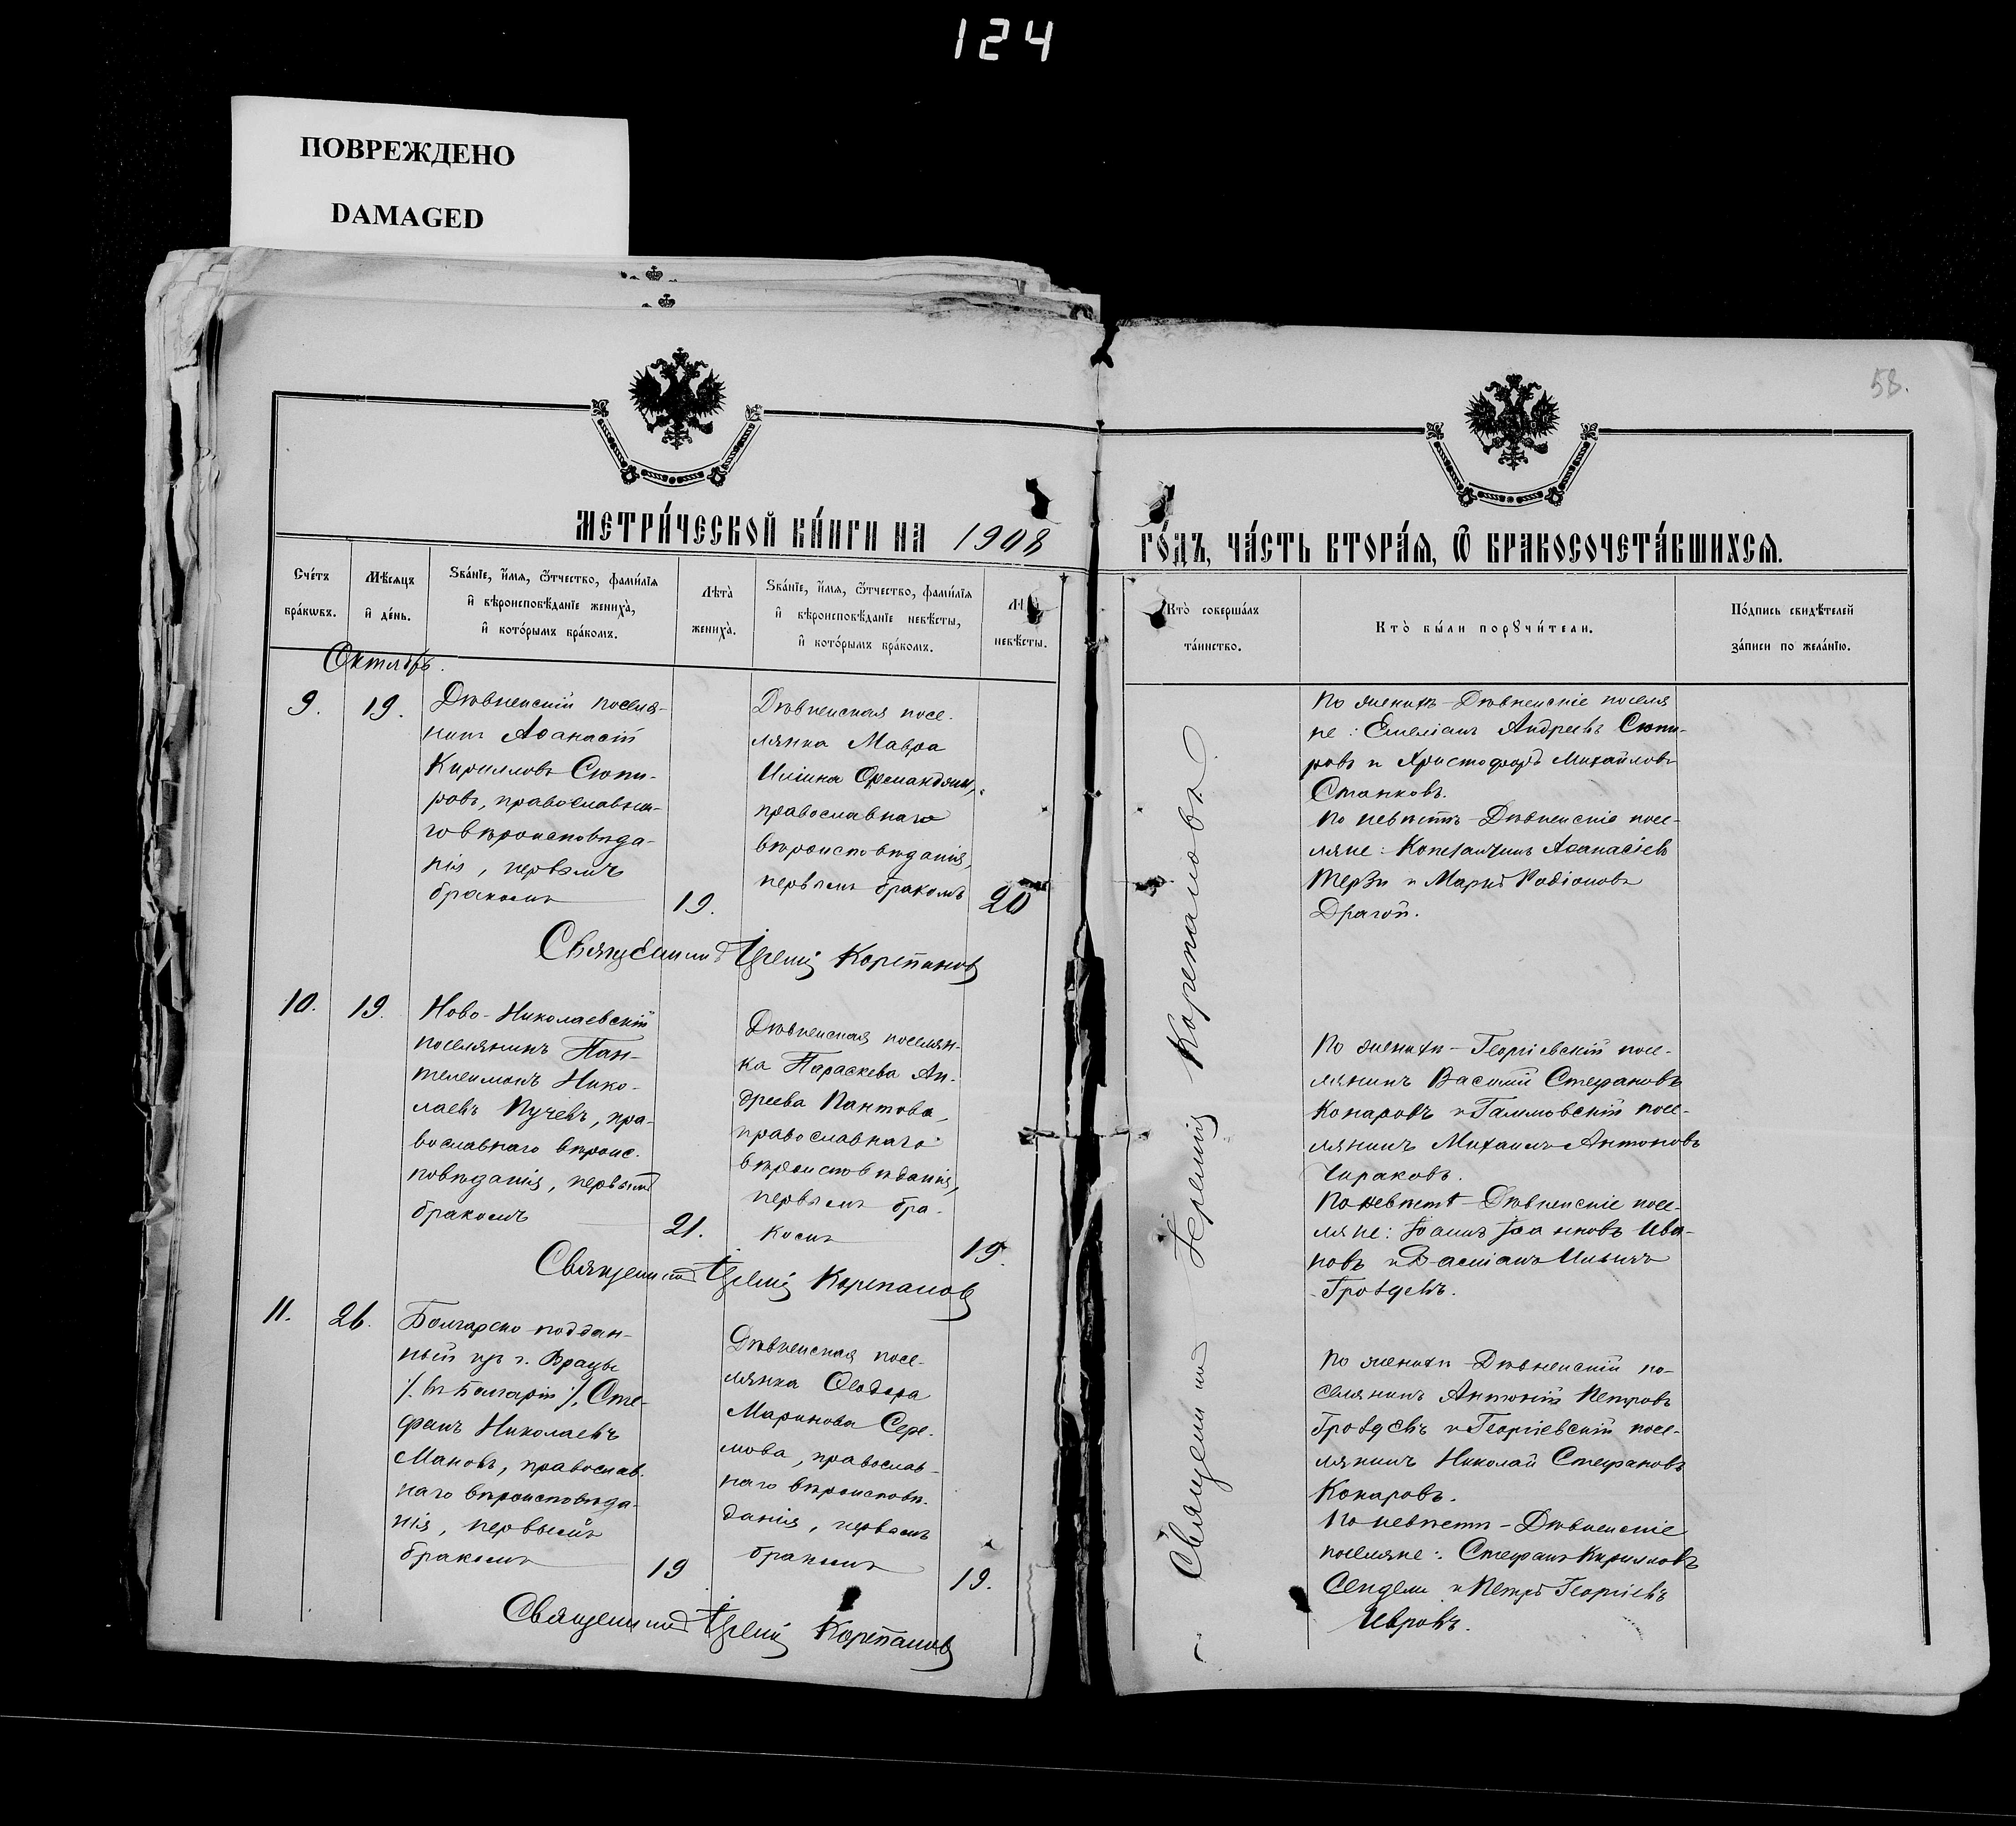 124
ПОВРЕЖДЕНО
DAMAGED
58.
МЕТРИ́ЧЕСКОЙ КНИ́ГИ НА 1908
ГО́ДЪ, ЧА́СТЬ ВТОРА́Я, Ѿ БРАКОСОЧЕТА́ВШИХСЯ.
Сче́тъ
бра́кѡвъ.
Мѣ́сяцъ
и҆ де́нь.
Ѕва́нїе, и҆́мя, ѻ҆́тчество, фами́лїя
и҆ вѣроисповѣ́данїе жениха̀,
и҆ кото́рымъ бра́комъ.
Лѣта̀
жениха̀.
Ѕва́нїе, и҆́мя, ѻ҆́тчество, фами́лїя
и҆ вѣроисповѣ́данїе невѣ́сты,
и҆ кото́рымъ бра́комъ.
невѣ́сты.
Кто̀ соверша́лъ
та́инство.
Кто̀ бы́ли порꙋчи́тели.
По́дпись свидѣ́телей
за́писи по жела́нїю.
Октябрь.
9.
19.
Дѣвненскій поселя-
нинъ Аѳанасій
Кирилловъ Сюпи-
ровъ, православна-
го вѣроисповѣда-
нія, первымъ
бракомъ
19.
Дѣвненская посе-
лянка Мавра
Иліина
православнаго
вѣроисповѣданія,
первымъ бракомъ
20
Священникъ Іеремія Корепановъ
По женихѣ – Дѣвненскіе поселя
не: Емеліанъ Андреевъ Сюпи-
ровъ и Христофоръ Михайловъ
Станковъ.
По невѣстѣ – Дѣвненскіе посе-
ляне: Константинъ Аѳанасіевъ
Терзи и Марко Родіоновъ
Драгой.
10.
19.
Ново-Николаевскій
поселянинъ Пан-
телеимонъ Нико-
лаевъ Пучевъ, пра-
вославнаго вѣроис-
повѣданія, первымъ
бракомъ
21.
Дѣвненская поселян-
ка Параскева Ан-
дреева Пантова,
православнаго
вѣроисповѣданія,
первымъ бра-
комъ
19.
Священникъ Іеремія Корепановъ
По женихѣ – Георгіевскій посе-
лянинъ Василій Стефановъ
Конаровъ и посе-
лянинъ Михаилъ Антоновъ
Чираковъ.
По невѣстѣ – Дѣвненскіе посе-
ляне: Іоаннъ Іоанновъ Ива-
новъ и Касміанъ Ильичъ
Гроздевъ.
11.
26.
Болгарско-поддан-
ный изъ г. Врацы
/. въ Болгаріи ./, Сте-
фанъ Николаевъ
Мановъ, православ-
наго вѣроисповѣда-
нія, первымъ
бракомъ
19
Дѣвненская посе-
лянка Ѳеодора
Маринова Сере-
мова, православ-
наго вѣроисповѣ-
данія, первымъ
бракомъ
19.
Священникъ Іеремія Корепановъ
По женихѣ – Дѣвненскій по-
селянинъ Антоній Петровъ
Гроздевъ и Георгіевскій посе-
лянинъ Николай Стефановъ
Конаровъ.
По невѣстѣ – Дѣвненскіе
поселяне: Стефанъ Кирилловъ
Сендели и Петръ Георгіевъ
Ивровъ.
Священникъ Іеремія Корепановъ